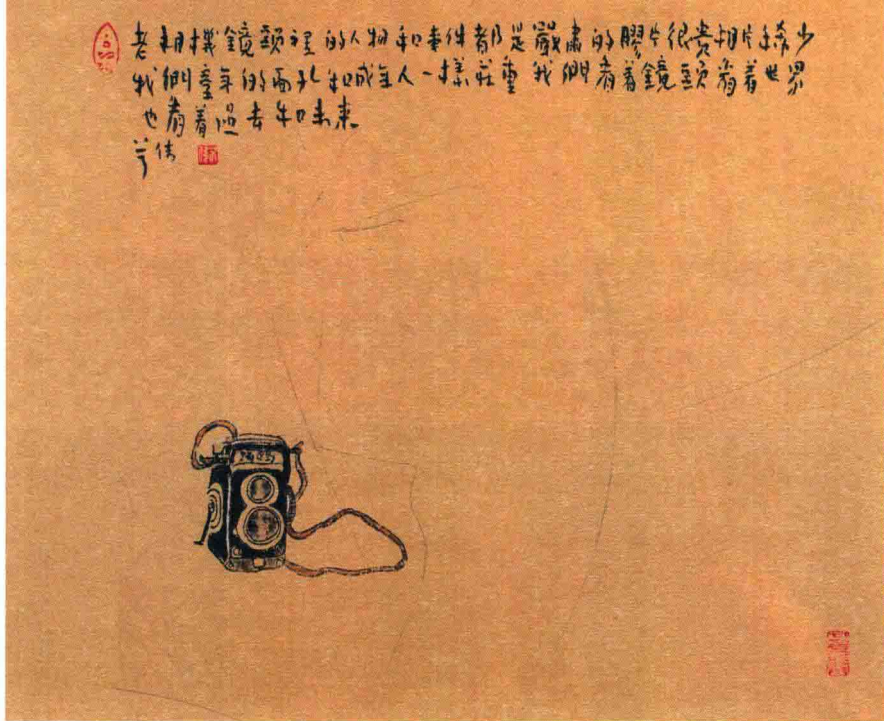 老相機鏡頭裡的人物和事件都是嚴肅的膠片很貴相片稀少
我們童年的面孔和成年人一樣莊重 我們看着鏡頭看着世界
也看着過去和未來